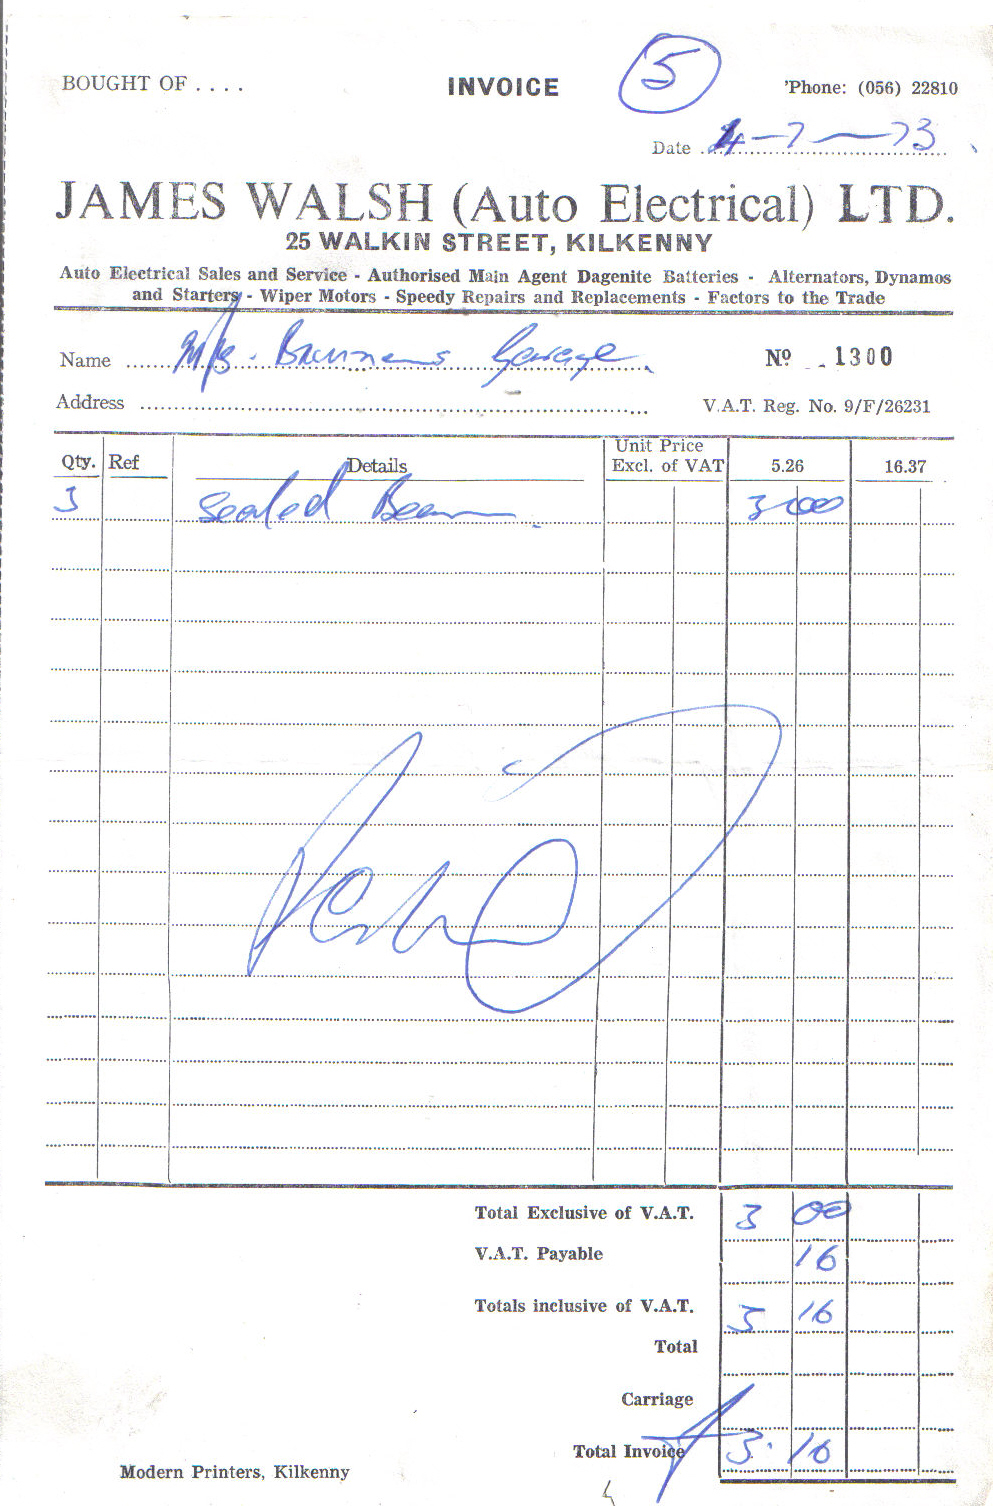 BOUGHT OF . . . .
INVOICE
5
'Phone: (056) 22810
Date 4-7-73
JAMES WALSH (Auto Electrical) LTD.
25 WALKIN STREET, KILKENNY
Auto Electrical Sales and Service - Authorised Main Agent Dagenite Batteries - Alternators, Dynamos
and Starters - Wiper Motors - Speedy Repairs and Replacements - Factors to the Trade
Name M/s. Brennans Garage. Nº 1300
Address V.A.T. Reg. No. 9/F/26231
Qty. Ref Details Unit Price Excl. of VAT 5.26 16.37
3 Sealed Beam 3 00
Total Exclusive of V.A.T. 3 00
V.A.T. Payable 16
Totals inclusive of V.A.T. 3 16
Total
Carriage
Total Invoice 3. 16
Modern Printers, Kilkenny